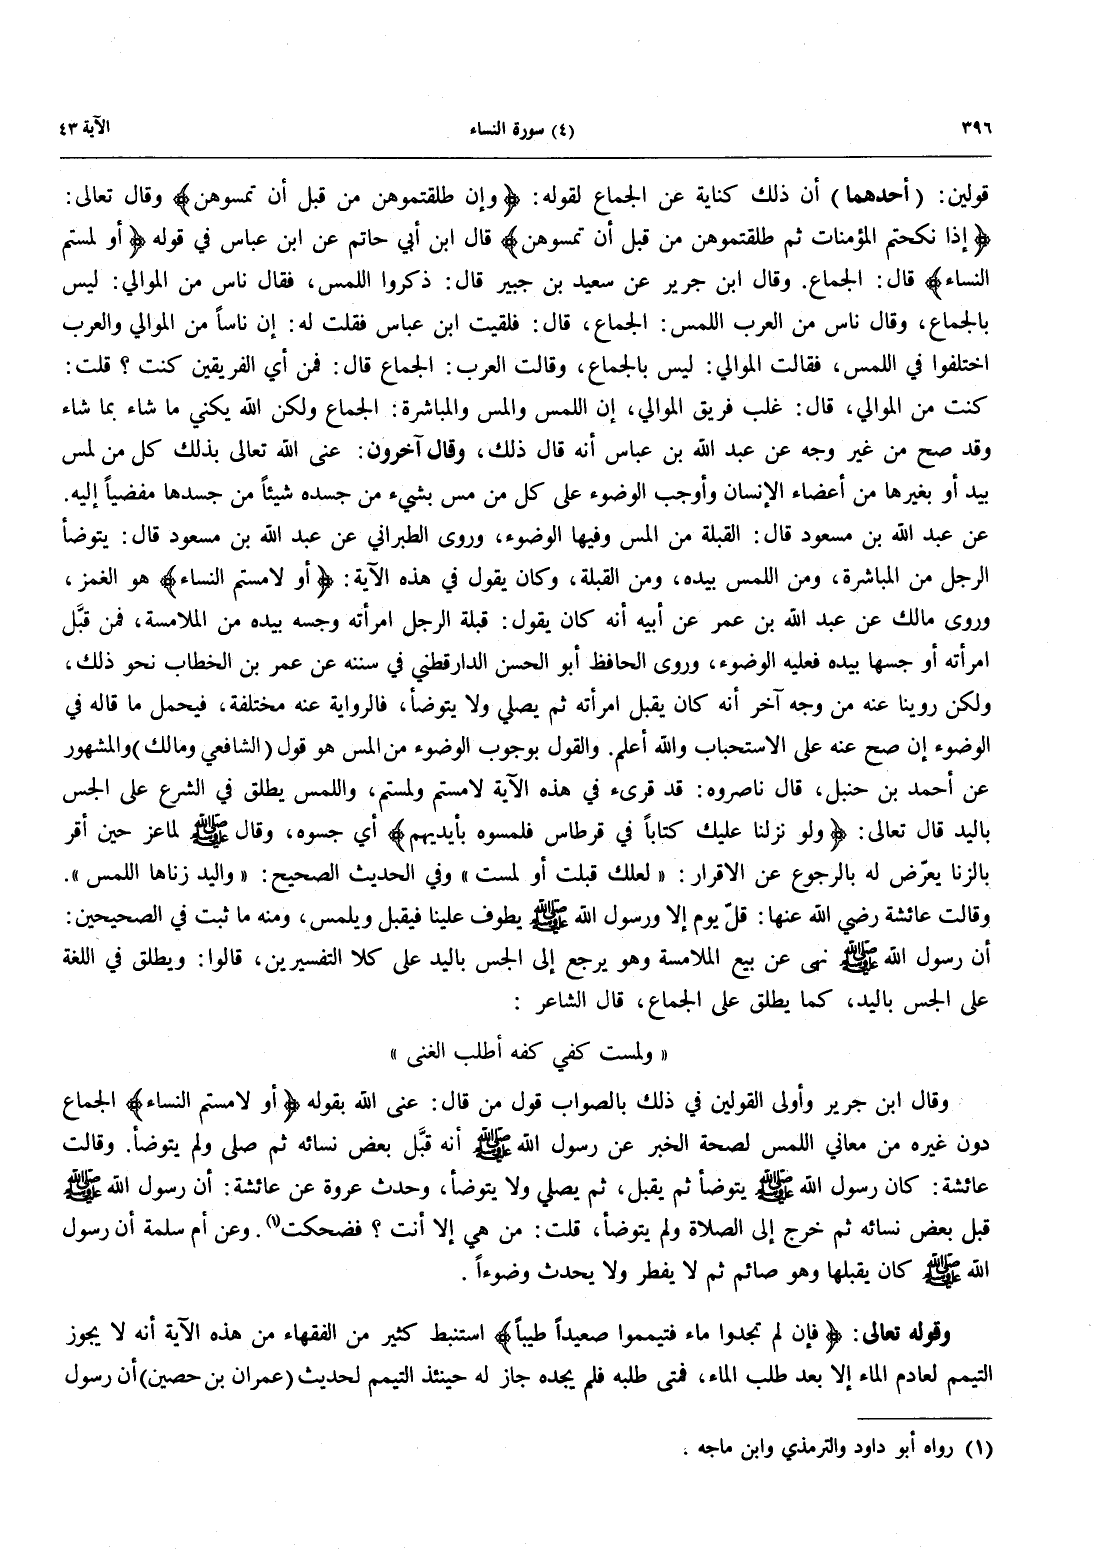 ٣٩٦ (٤) سورة النساء الآية ٤٣
قولين: (أحدهما) أن ذلك كناية عن الجماع لقوله: ﴿وإن طلقتموهن من قبل أن تمسوهن﴾ وقال تعالى:
﴿إذا نكحتم المؤمنات ثم طلقتموهن من قبل أن تمسوهن﴾ قال ابن أبي حاتم عن ابن عباس في قوله ﴿أو لمستم
النساء﴾ قال: الجماع. وقال ابن جرير عن سعيد بن جبير قال: ذكروا اللمس، فقال ناس من الموالي: ليس
بالجماع، وقال ناس من العرب اللمس: الجماع، قال: فلقيت ابن عباس فقلت له: إن ناساً من الموالي والعرب
اختلفوا في اللمس، فقالت الموالي: ليس بالجماع، وقالت العرب: الجماع قال: فمن أي الفريقين كنت؟ قلت:
كنت من الموالي، قال: غلب فريق الموالي، إن اللمس والمس والمباشرة: الجماع ولكن الله يكني ما شاء بما شاء
وقد صح من غير وجه عن عبد الله بن عباس أنه قال ذلك، وقال آخرون: عنى الله تعالى بذلك كل من لمس
بيد أو بغيرها من أعضاء الإنسان وأوجب الوضوء على كل من مس بشيء من جسده شيئاً من جسدها مفضياً إليه.
عن عبد الله بن مسعود قال: القبلة من المس وفيها الوضوء، وروى الطبراني عن عبد الله بن مسعود قال: يتوضأ
الرجل من المباشرة، ومن اللمس بيده، ومن القبلة، وكان يقول في هذه الآية: ﴿أو لامستم النساء﴾ هو الغمز،
وروى مالك عن عبد الله بن عمر عن أبيه أنه كان يقول: قبلة الرجل امرأته وجسه بيده من الملامسة، فمن قبَّل
امرأته أو جسها بيده فعليه الوضوء، وروى الحافظ أبو الحسن الدارقطني في سننه عن عمر بن الخطاب نحو ذلك،
ولكن روينا عنه من وجه آخر أنه كان يقبل امرأته ثم يصلي ولا يتوضأ، فالرواية عنه مختلفة، فيحمل ما قاله في
الوضوء إن صح عنه على الاستحباب والله أعلم. والقول بوجوب الوضوء من المس هو قول (الشافعي ومالك) والمشهور
عن أحمد بن حنبل، قال ناصروه: قد قرىء في هذه الآية لامستم ولمستم، واللمس يطلق في الشرع على الجس
باليد قال تعالى: ﴿ولو نزلنا عليك كتاباً في قرطاس فلمسوه بأيديهم﴾ أي جسوه، وقال ﷺ لماعز حين أقر
بالزنا يعرّض له بالرجوع عن الاقرار: «لعلك قبلت أو لمست» وفي الحديث الصحيح: «واليد زناها اللمس».
وقالت عائشة رضي الله عنها: قلّ يوم إلا ورسول الله ﷺ يطوف علينا فيقبل ويلمس، ومنه ما ثبت في الصحيحين:
أن رسول الله ﷺ نهى عن بيع الملامسة وهو يرجع إلى الجس باليد على كلا التفسيرين، قالوا: ويطلق في اللغة
على الجس باليد، كما يطلق على الجماع، قال الشاعر :
« ولمست كفي كفه أطلب الغنى »
وقال ابن جرير وأولى القولين في ذلك بالصواب قول من قال: عنى الله بقوله ﴿أو لامستم النساء﴾ الجماع
دون غيره من معاني اللمس لصحة الخبر عن رسول الله ﷺ أنه قبَّل بعض نسائه ثم صلى ولم يتوضأ. وقالت
عائشة: كان رسول الله ﷺ يتوضأ ثم يقبل، ثم يصلي ولا يتوضأ، وحدث عروة عن عائشة: أن رسول الله ﷺ
قبل بعض نسائه ثم خرج إلى الصلاة ولم يتوضأ، قلت: من هي إلا أنت؟ فضحكت(١). وعن أم سلمة أن رسول
الله ﷺ كان يقبلها وهو صائم ثم لا يفطر ولا يحدث وضوءاً .
وقوله تعالى: ﴿فإن لم تجدوا ماء فتيمموا صعيداً طيباً﴾ استنبط كثير من الفقهاء من هذه الآية أنه لا يجوز
التيمم لعادم الماء إلا بعد طلب الماء، فمتى طلبه فلم يجده جاز له حينئذ التيمم لحديث (عمران بن حصين) أن رسول
(١) رواه أبو داود والترمذي وابن ماجه .